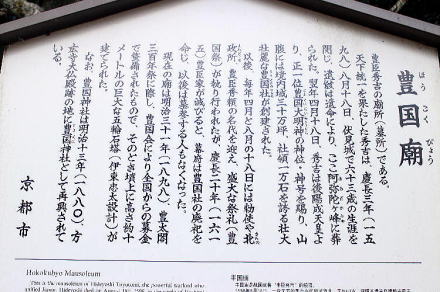 豊国廟
ほうこくびょう
豊臣秀吉の廟所（墓所）である。
天下統一を果たした秀吉は、慶長三年（一五
九八）八月十八日、伏見城で六十三歳の生涯を
閉じ、遺骸は遺命により、ここ阿弥陀ヶ峰に葬
られた。翌年四月十八日、秀吉は後陽成天皇よ
り、正一位豊国大明神の神位・神号を賜り、山
腹には境内域三十万坪、社領一万石を誇る壮大
壮麗な豊国社が創建された。
以後、毎年四月と八月の十八日には勅使や北
政所、豊臣秀頼の名代を迎え、盛大な祭礼（豊
国祭）が執り行われたが、慶長二十年（一六一
五）豊臣家が滅びると、幕府は豊国社の廃祀を
命じ、以後は墓参する人もなくなった。
現在の廟は明治三十一年（一八九八）豊太閤
三百年祭に際し、豊国会により全国からの募金
で整備されたもので、そのとき墳上に高さ約十
メートルの巨大な五輪石塔（伊東忠太設計）が
建てられた。
なお、豊国神社は明治十三年（一八八〇）、方
広寺大仏殿跡の地に豊国神社として再興されて
いる。
京都市
Hokokubyo Mausoleum
This is the mausoleum of Hideyoshi Toyotomi, the powerful warlord who
丰国庙